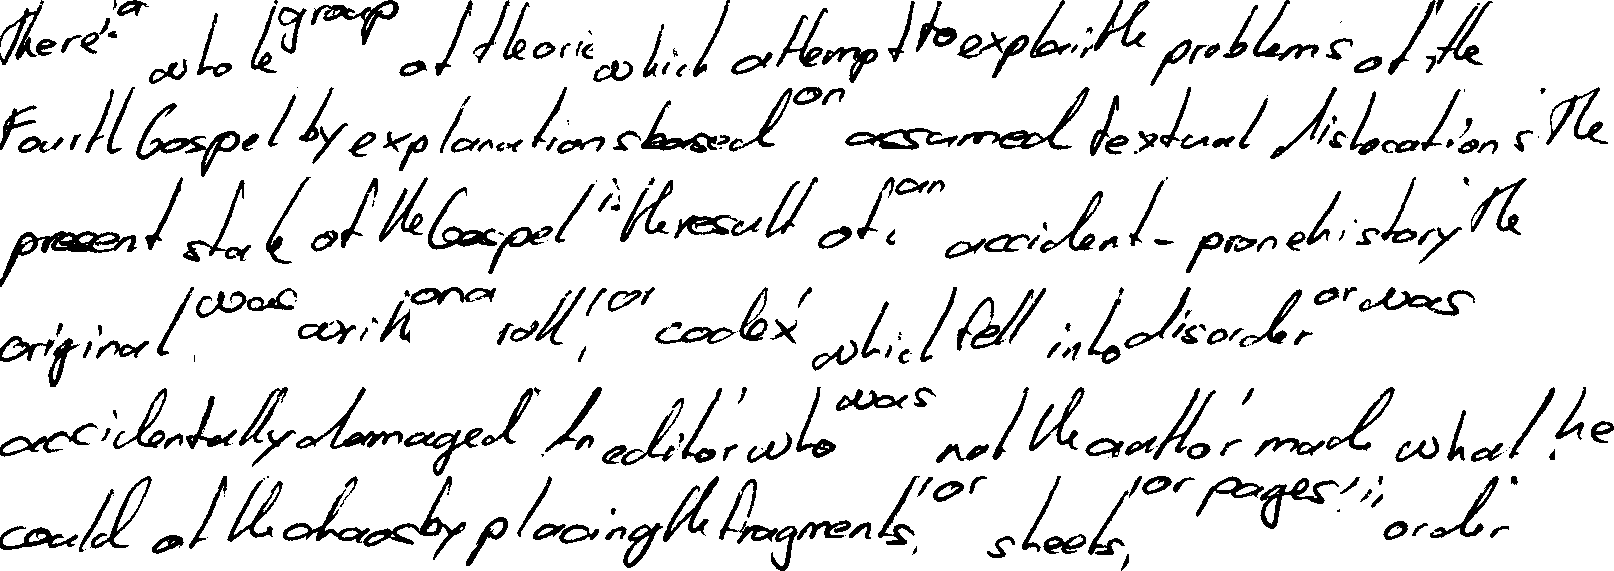 There is a whole group of theories which attempt to explain the problems of the
Fourth Gospel by explanations based on assumed textual dislocations. The
present state of the Gospel is the result of an accident-prone history. The
original was written on a roll, or codex, which fell into disorder or was
accidentally damaged. An editor, who was not the author, made what he
could of the chaos by placing the fragments, or sheets, or pages, in order